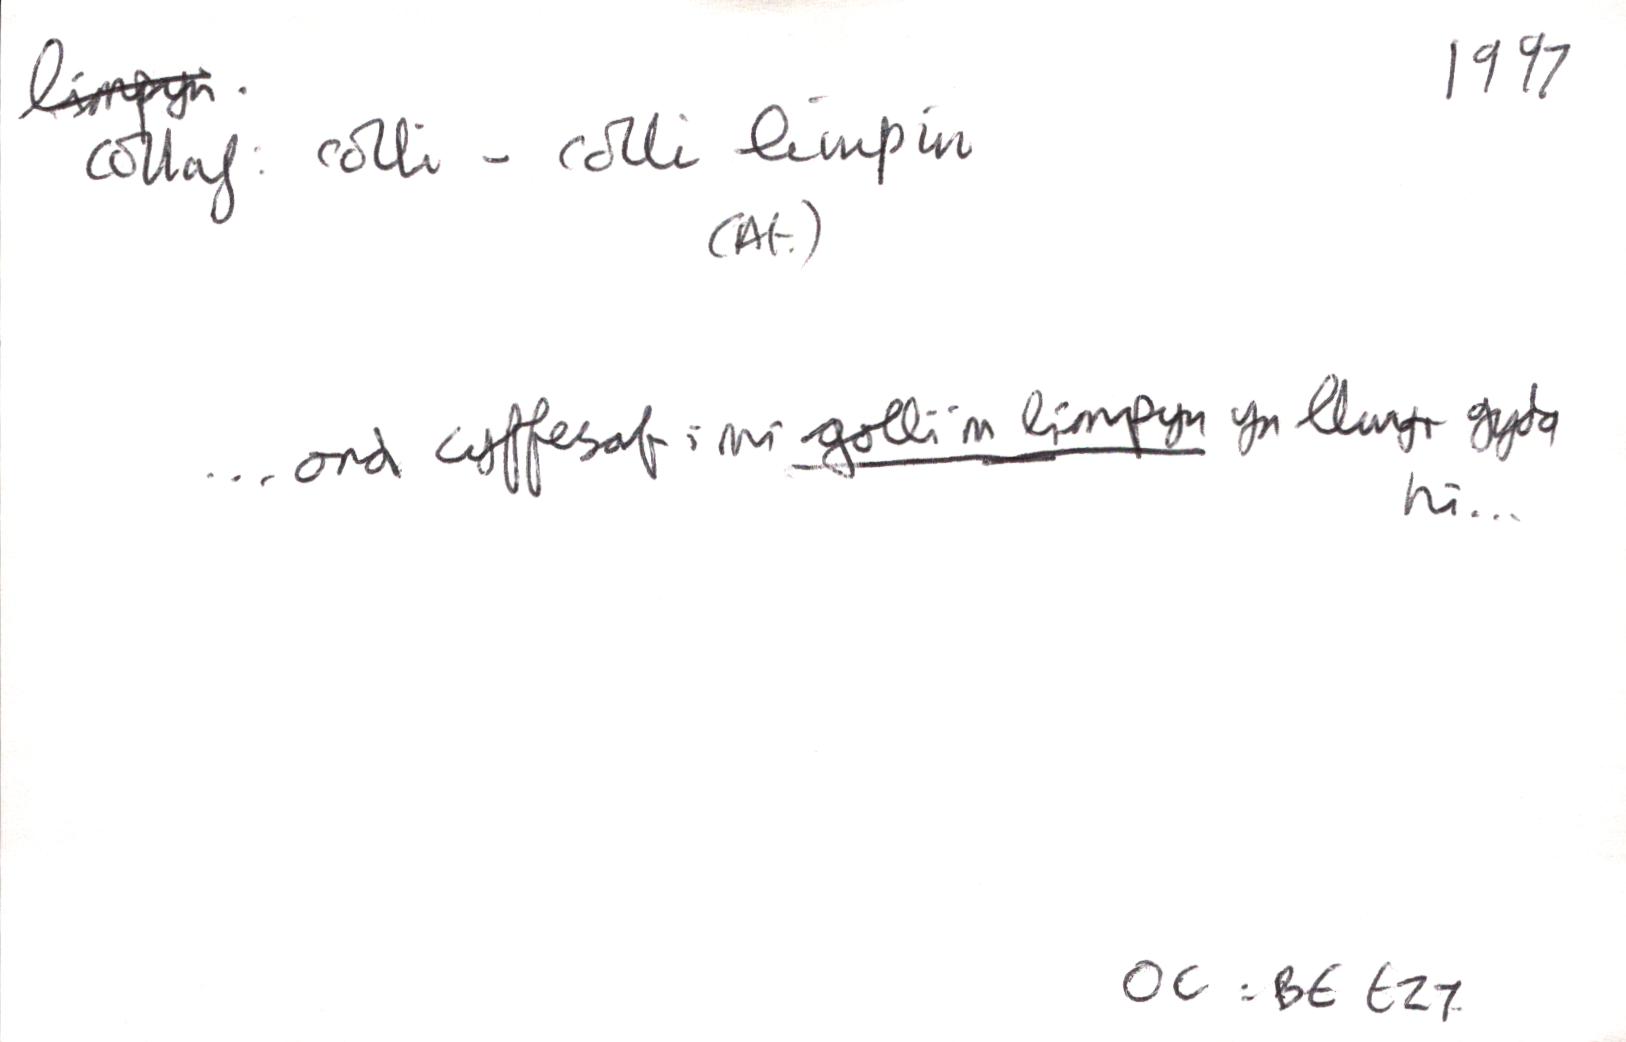 limpyn. 1997
collaf: colli - colli limpin
(At.)
...ond cyffesaf i mi golli'n limpyn yn llwyr gyda
hi...
OC : BE t27